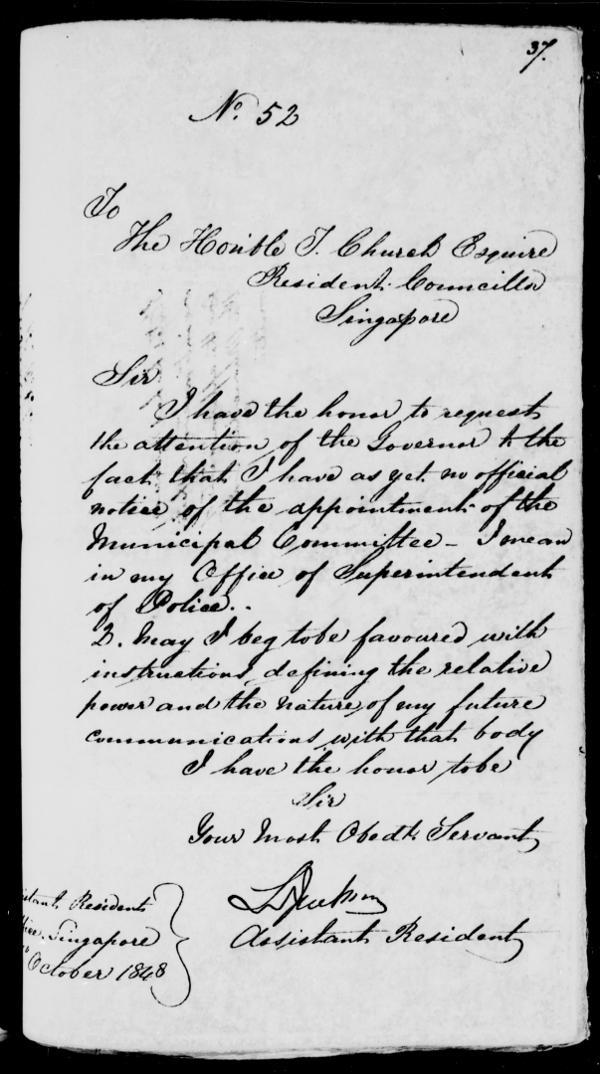 37.
No. 52
To
The Honble T. Church Esquire
Resident Councillor
Singapore
Sir
I have the honor to request
the attention of the Governor to the
fact that I have as yet no official
notice of the appointment of the
Municipal Committee _ I mean
in my Office of Superintendent
of Police..
2. May I beg to be favoured with
instructions, defining the relative
power and the nature, of my future
communications with that body
I have the honor to be
Sir
Your Most Obedt. Servant,
Assistant Resident
Resident
Singapore
October 1848